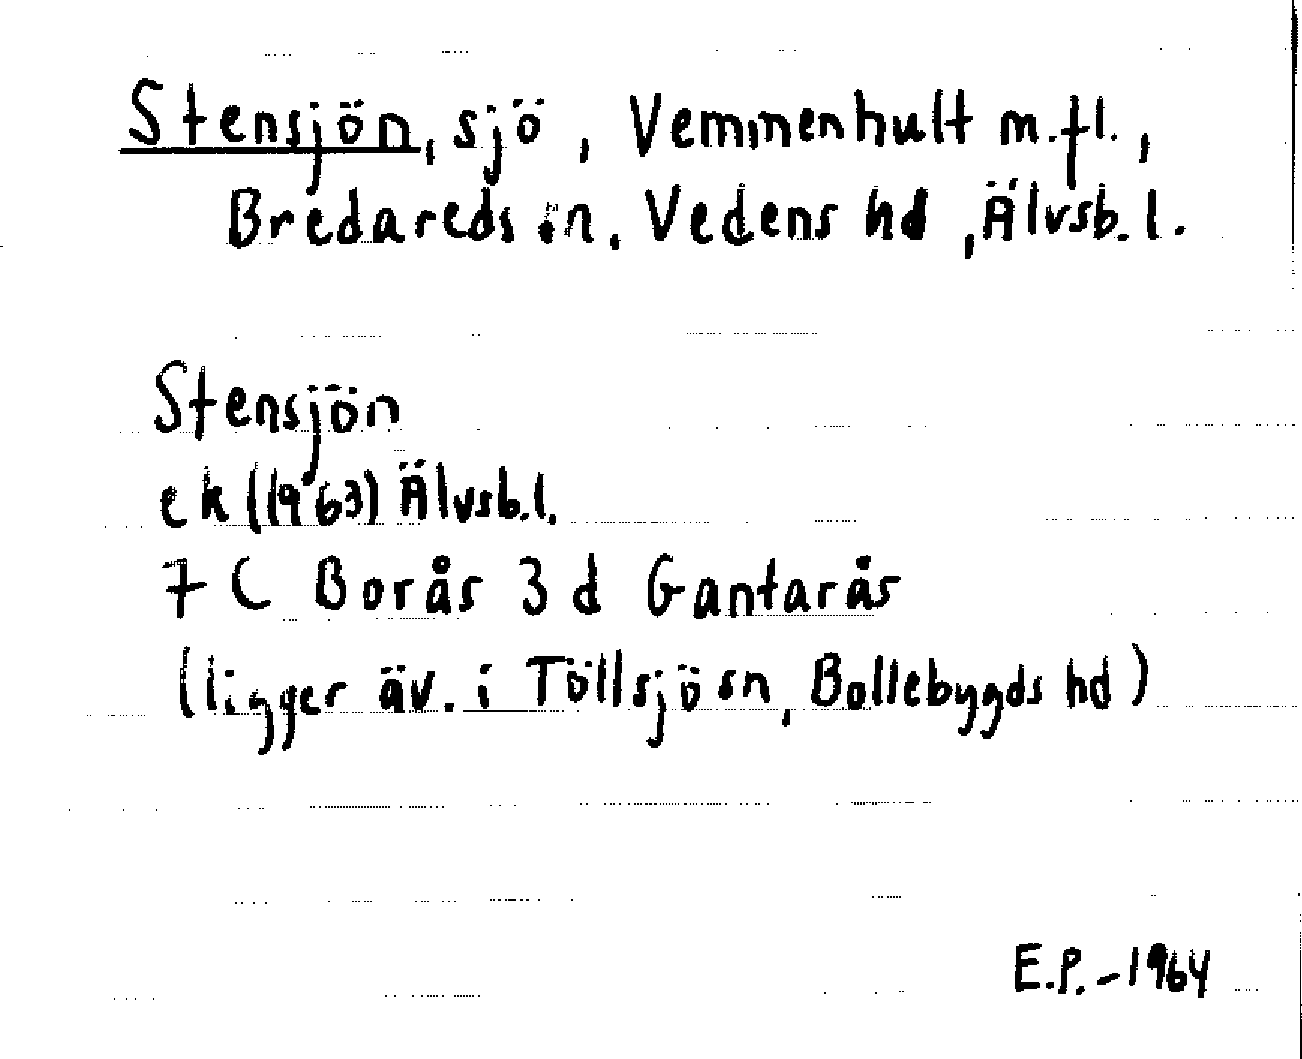 Stensjön, sjö, Vemmenhult m.fl.,
Bredareds sn, Vedens hd, Älvsb.l.
Stensjön
ek (1963) Älvsb.l.
7 C Borås 3 d Gantarås
(ligger äv. i Töllsjö sn, Bollebygds hd)
E.P. - 1964